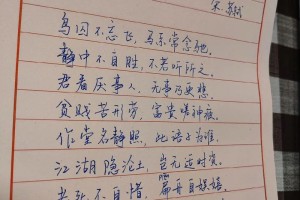 宋 苏轼
鸟囚不忘飞，马系常念驰。
静中不自胜，不若听所之。
君看厌事人，无事乃更悲。
贫贱苦形劳，富贵嗟神疲。
作堂名静照，此语子为谁。
江湖隐沦士，岂无适时资。
老死不自惜，扁舟自娱嬉。